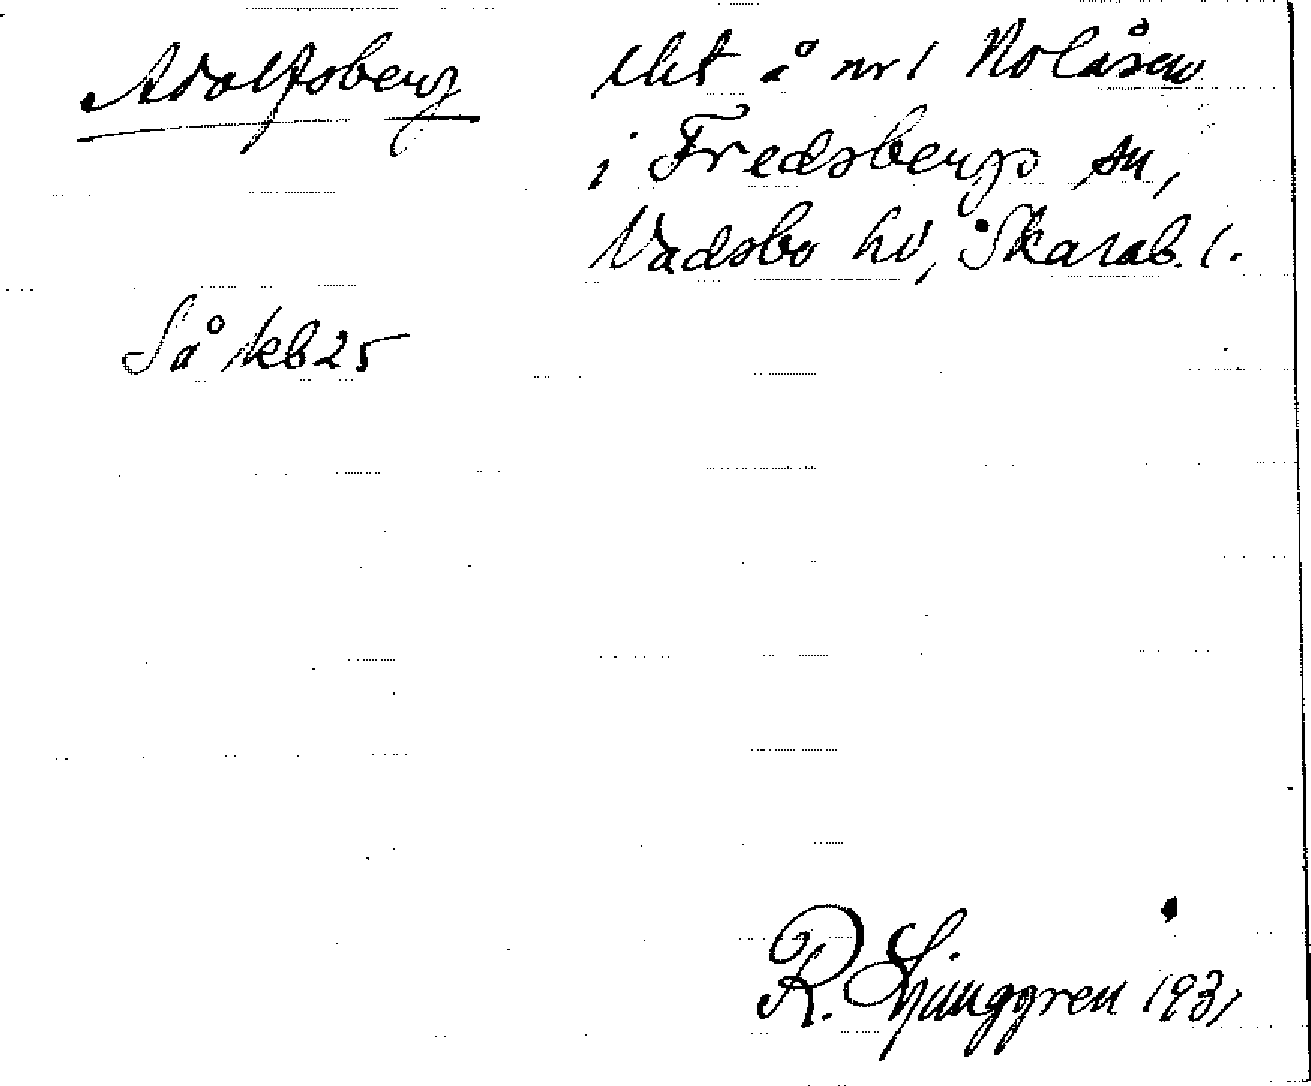 Adolfsberg
lht å nr 1 Nolåsen
i Fredsbergs sn,
Vadsbo hd, Skarab. l.
Så 1kb 25
R. Ljunggren 1931